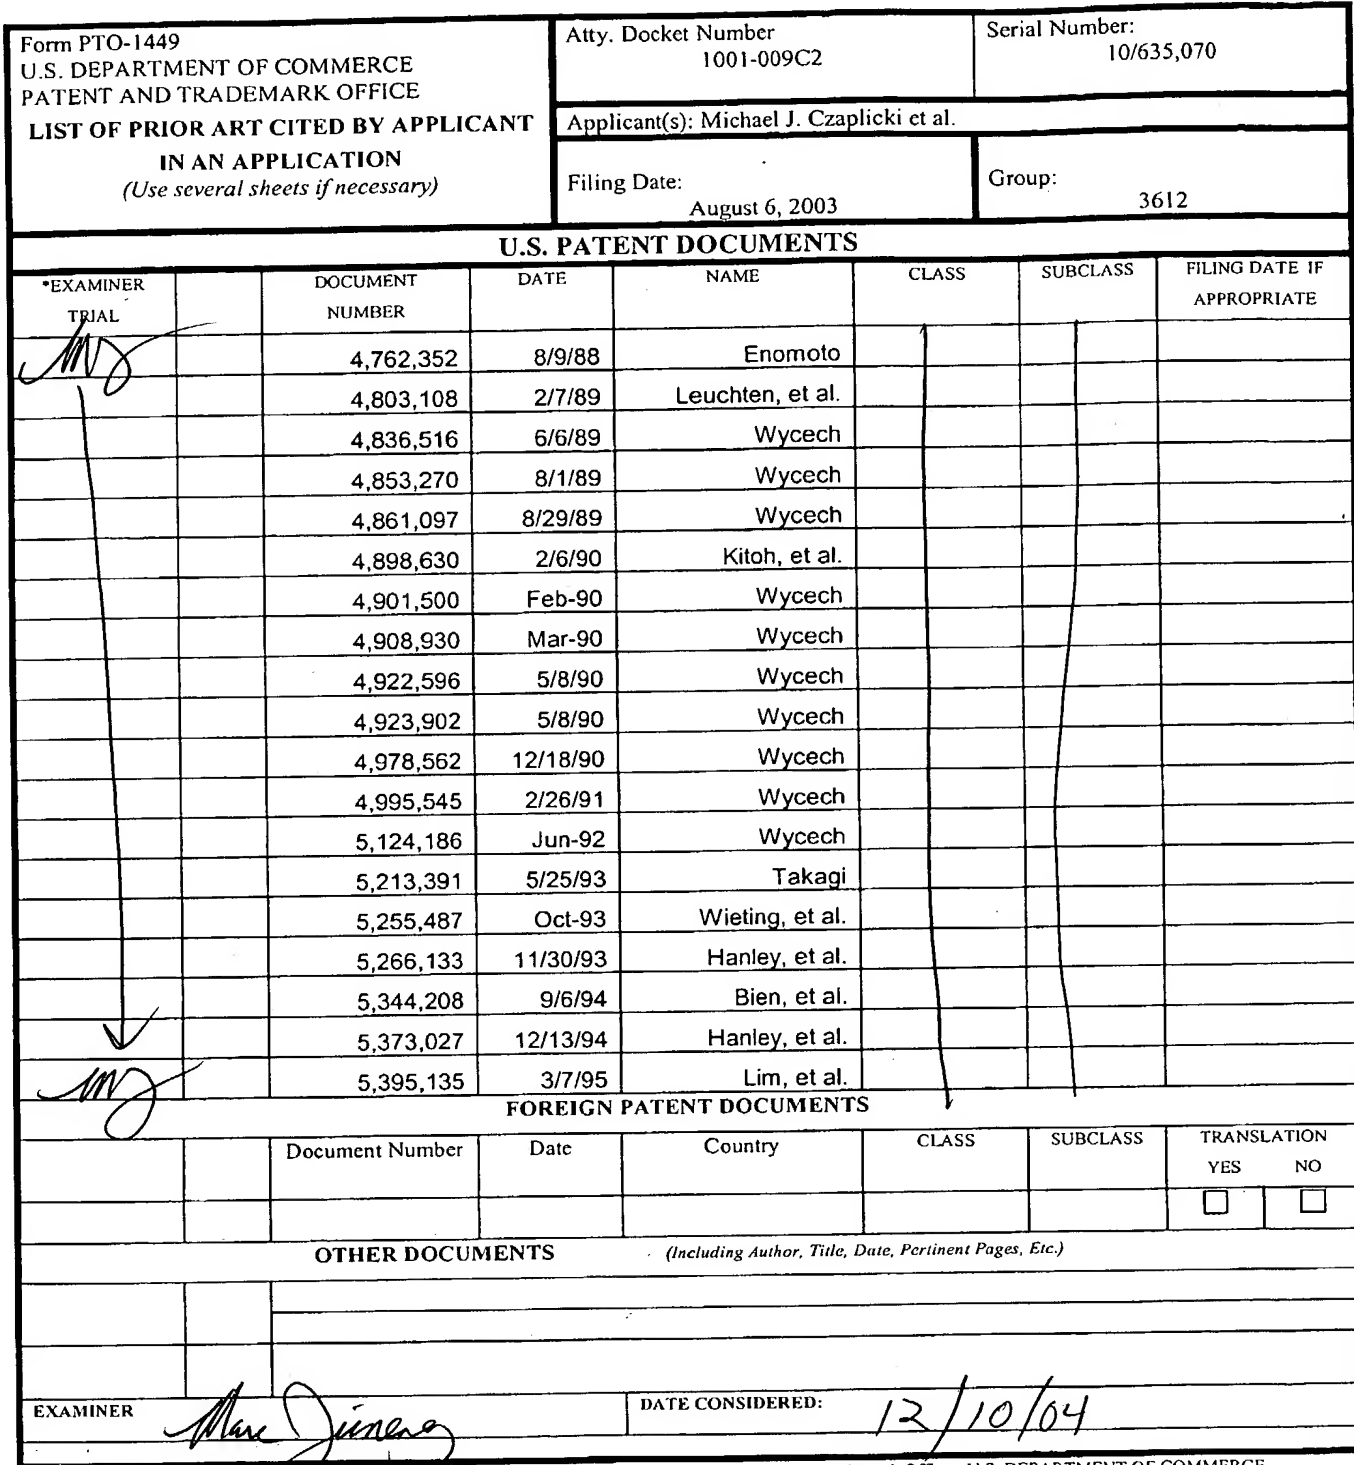 Form PTO-1449
U.S. DEPARTMENT OF COMMERCE
PATENT AND TRADEMARK OFFICE
LIST OF PRIOR ART CITED BY APPLICANT
IN AN APPLICATION
(Use several sheets if necessary)
Atty. Docket Number
1001-009C2
Serial Number:
10/635,070
Applicant(s): Michael J. Czaplicki et al.
Filing Date:
August 6, 2003
Group:
3612
U.S. PATENT DOCUMENTS
*EXAMINER TRIAL DOCUMENT NUMBER DATE NAME CLASS SUBCLASS FILING DATE IF APPROPRIATE
4,762,352 8/9/88 Enomoto
4,803,108 2/7/89 Leuchten, et al.
4,836,516 6/6/89 Wycech
4,853,270 8/1/89 Wycech
4,861,097 8/29/89 Wycech
4,898,630 2/6/90 Kitoh, et al.
4,901,500 Feb-90 Wycech
4,908,930 Mar-90 Wycech
4,922,596 5/8/90 Wycech
4,923,902 5/8/90 Wycech
4,978,562 12/18/90 Wycech
4,995,545 2/26/91 Wycech
5,124,186 Jun-92 Wycech
5,213,391 5/25/93 Takagi
5,255,487 Oct-93 Wieting, et al.
5,266,133 11/30/93 Hanley, et al.
5,344,208 9/6/94 Bien, et al.
5,373,027 12/13/94 Hanley, et al.
5,395,135 3/7/95 Lim, et al.
FOREIGN PATENT DOCUMENTS
Document Number Date Country CLASS SUBCLASS TRANSLATION
YES NO
OTHER DOCUMENTS (Including Author, Title, Date, Pertinent Pages, Etc.)
EXAMINER Marc Jimenez DATE CONSIDERED: 12/10/04
U.S. DEPARTMENT OF COMMERCE